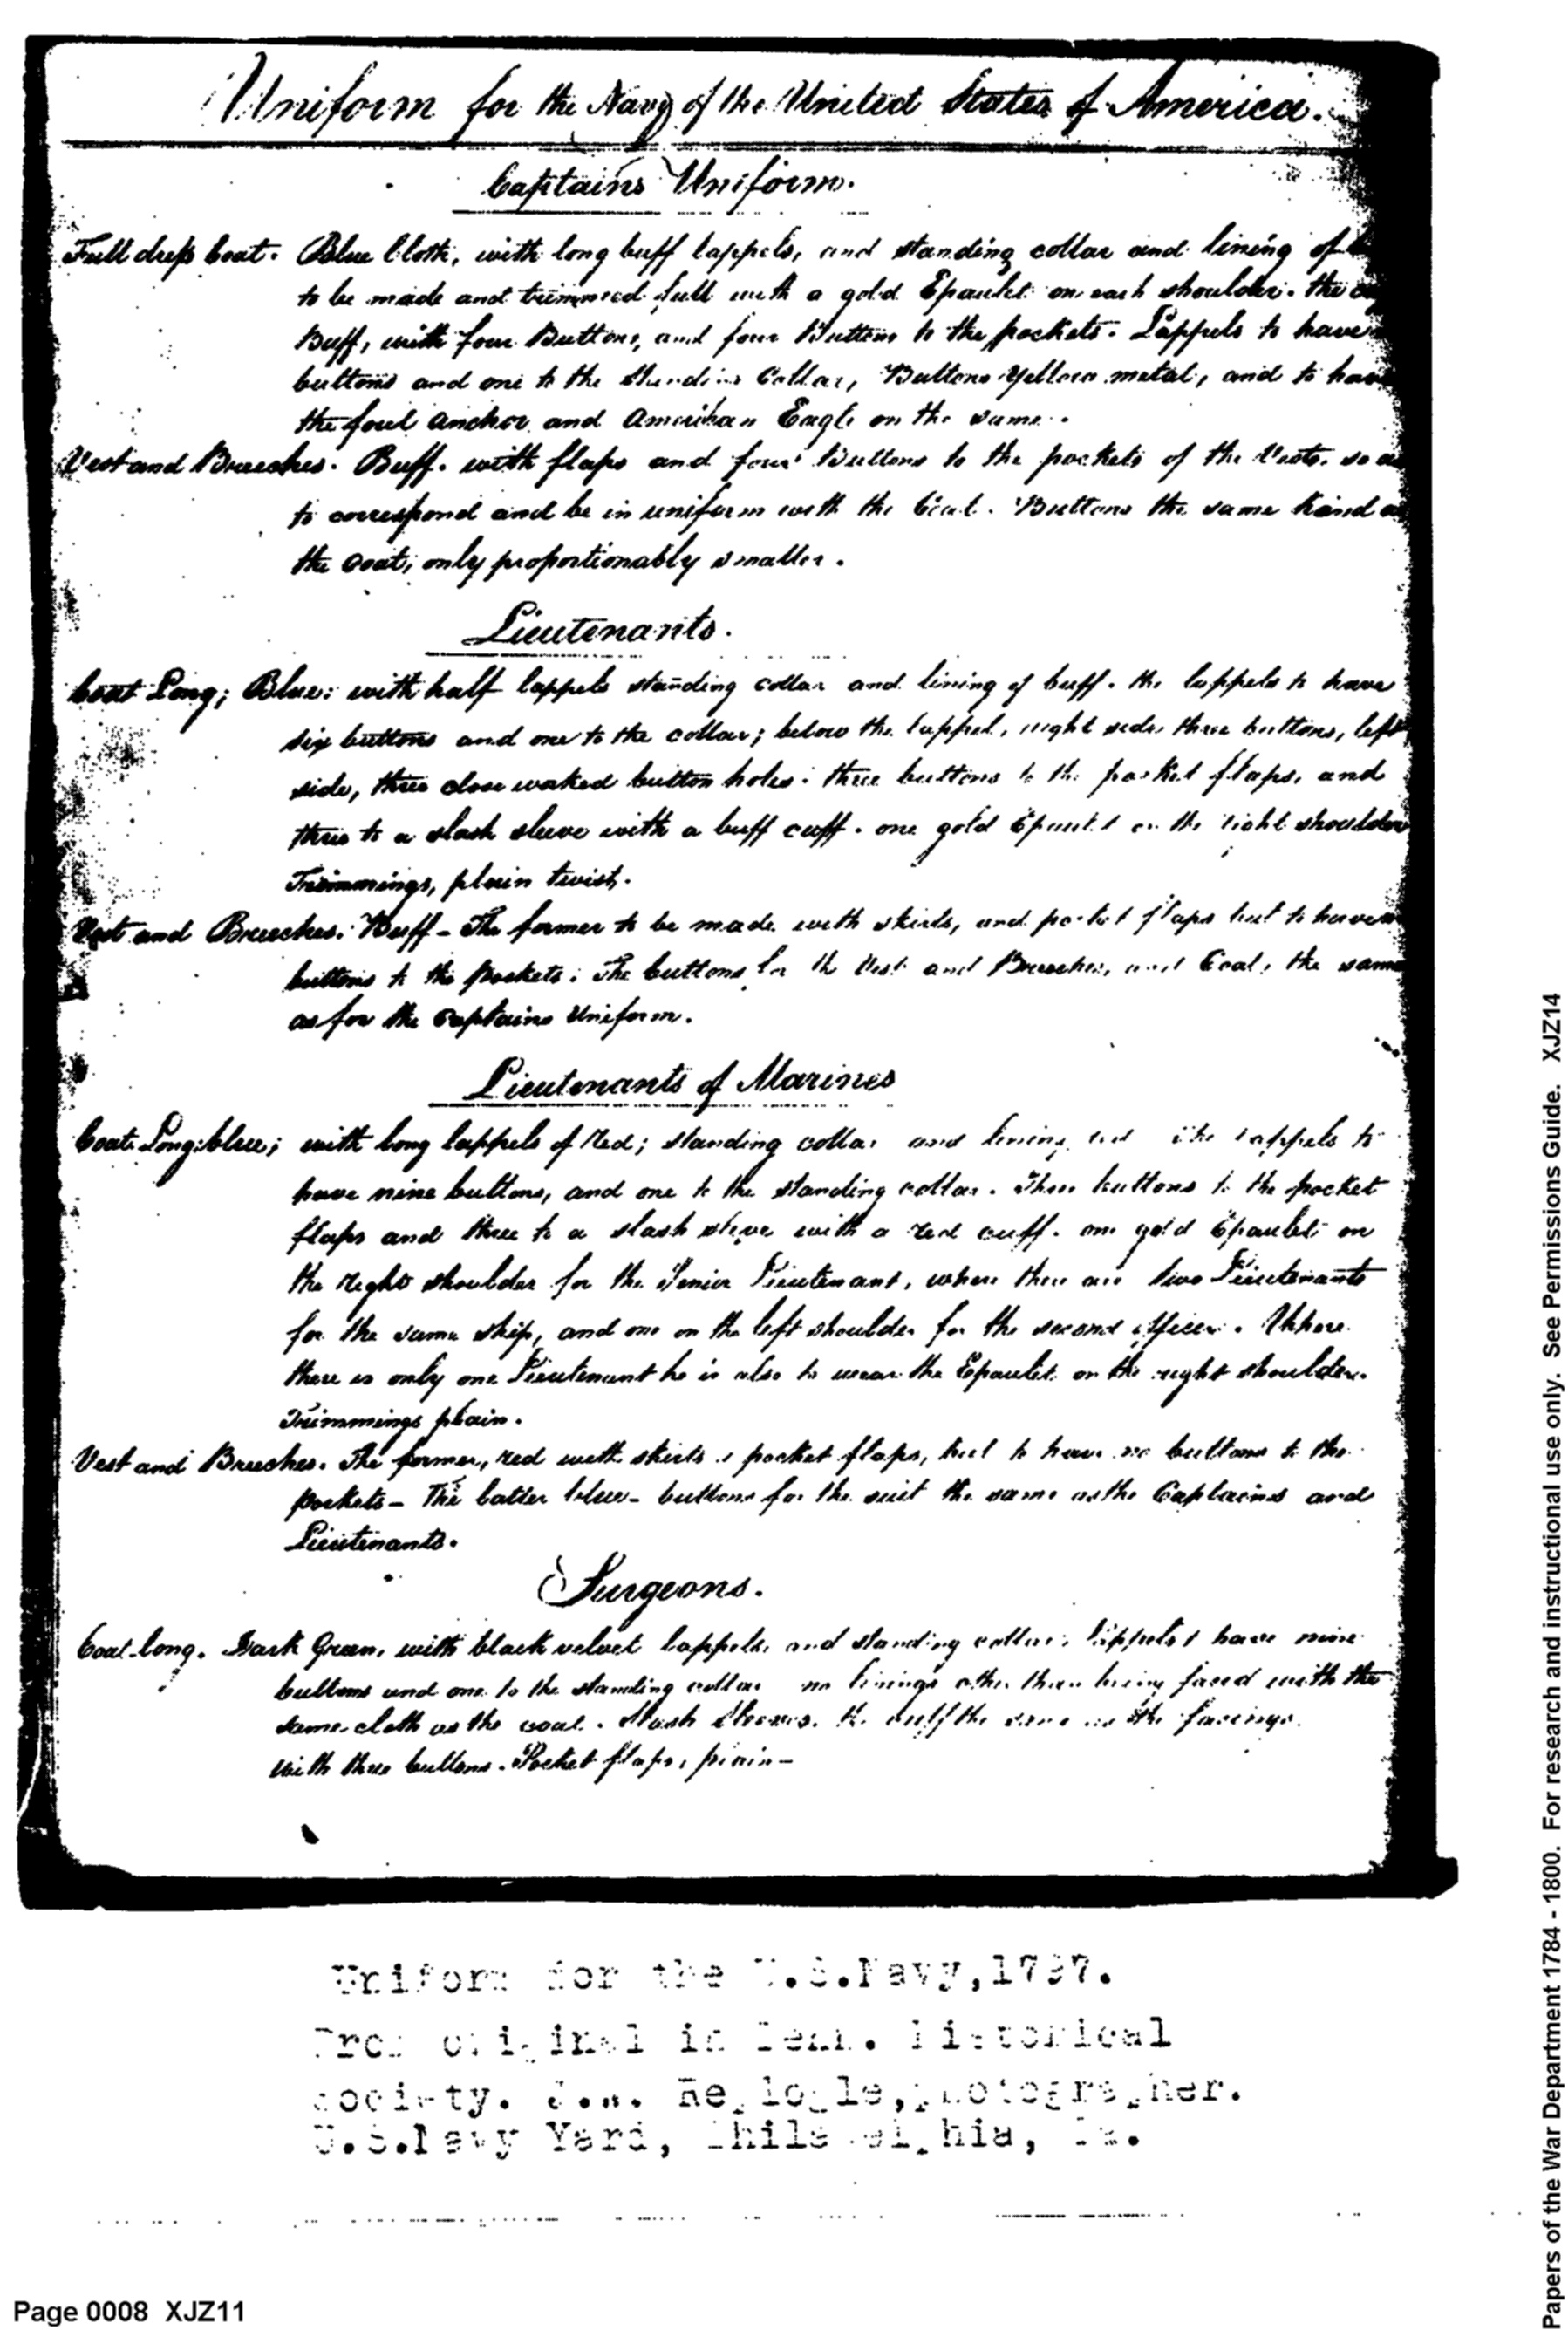 Uniform for the Navy of the United States of America.
Captains Uniform.
Full dress Coat. Blue Cloth, with long buff lappels, and standing collar and lining of
to be made and trimmed full with a gold Epaulet on each shoulder. the
Buff, with four Buttons, and four Buttons to the pockets. Lappels to have
buttons and one to the standing Collar, Buttons yellow metal, and to have
the foul anchor and American Eagle on the same.
Vest and Breeches. Buff. with flaps and four Buttons to the pockets of the Vests. so as
to correspond and be in uniform with the Coat. Buttons the same kind as
the coat, only proportionably smaller.
Lieutenants.
Coat Long; Blue: with half lappels standing collar and lining of buff. the lappels to have
six buttons and one to the collar; below the lappel, right side three buttons, left
side, three close worked button holes: three buttons to the pocket flaps, and
three to a slash sleeve with a buff cuff. one gold Epaulet on the right shoulder
Trimmings, plain twist.
Vest and Breeches. Buff - The former to be made with skirts, and pocket flaps but to have
buttons to the pockets: The buttons for the Vest and Breeches, and Coat, the same
as for the Captains Uniform.
Lieutenants of Marines
Coat. Long: blue; with long lappels of Red; standing collar and lining red The lappels to
have nine buttons, and one to the standing collar. Three buttons to the pocket
flaps and three to a slash sleeve with a red cuff. one gold Epaulet on
the right shoulder for the Senior Lieutenant, where there are two Lieutenants
for the same ship, and one on the left shoulder for the second officer. Where
there is only one Lieutenant he is also to wear the Epaulet on the right shoulder.
Trimmings plain.
Vest and Breeches. The former, red with skirts & pocket flaps, but to have no buttons to the
pockets - The latter blue - buttons for the suit the same as the Captains and
Lieutenants.
Surgeons.
Coat long. Dark Green, with black velvet lappels, and standing collar; lappels to have nine
buttons and one to the standing collar no linings other than being faced with the
same cloth as the coat. Slash Sleeves. the cuff the same as the facings
with three buttons. Pocket flaps, plain -
Uniform for the U.S.Navy,1797.
From original in Penn. Historical
Society. Replogle,photographer.
U.S.Navy Yard, Philadelphia, Pa.
Page 0008 XJZ11
Papers of the War Department 1784 - 1800. For research and instructional use only. See Permissions Guide. XJZ14